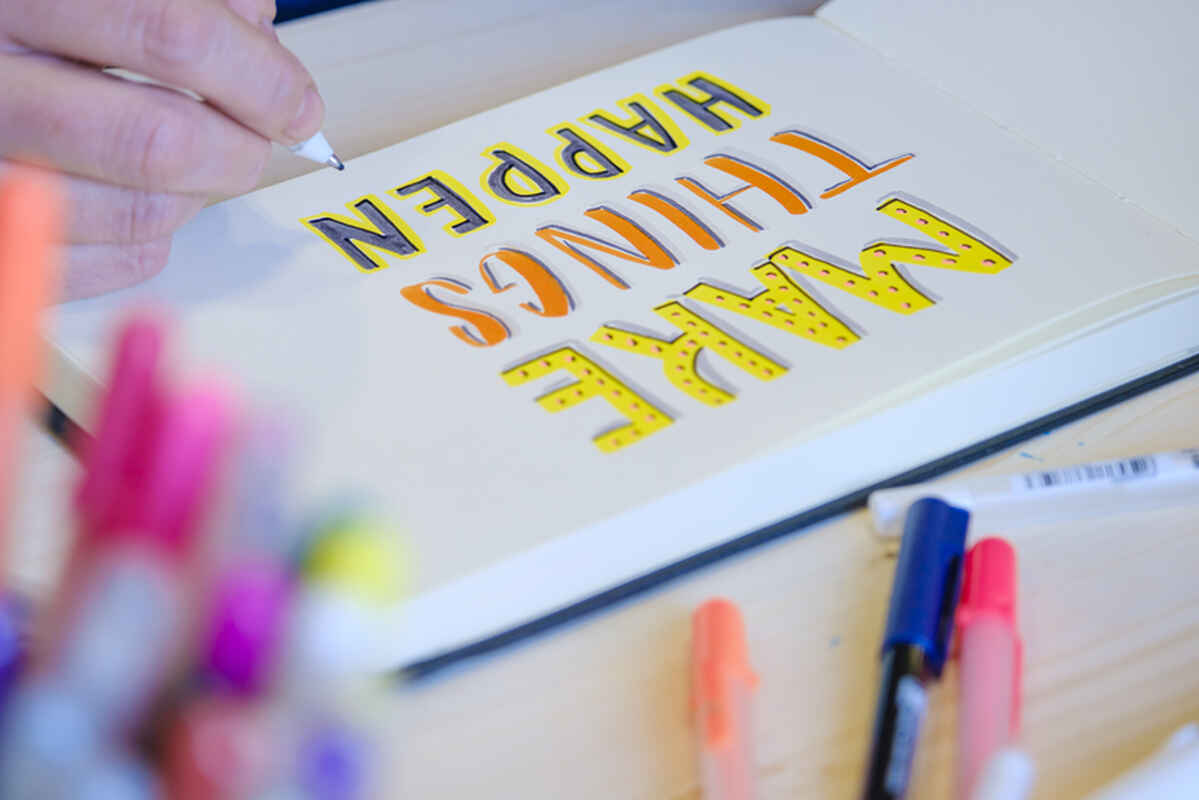 MAKE
THINGS
HAPPEN